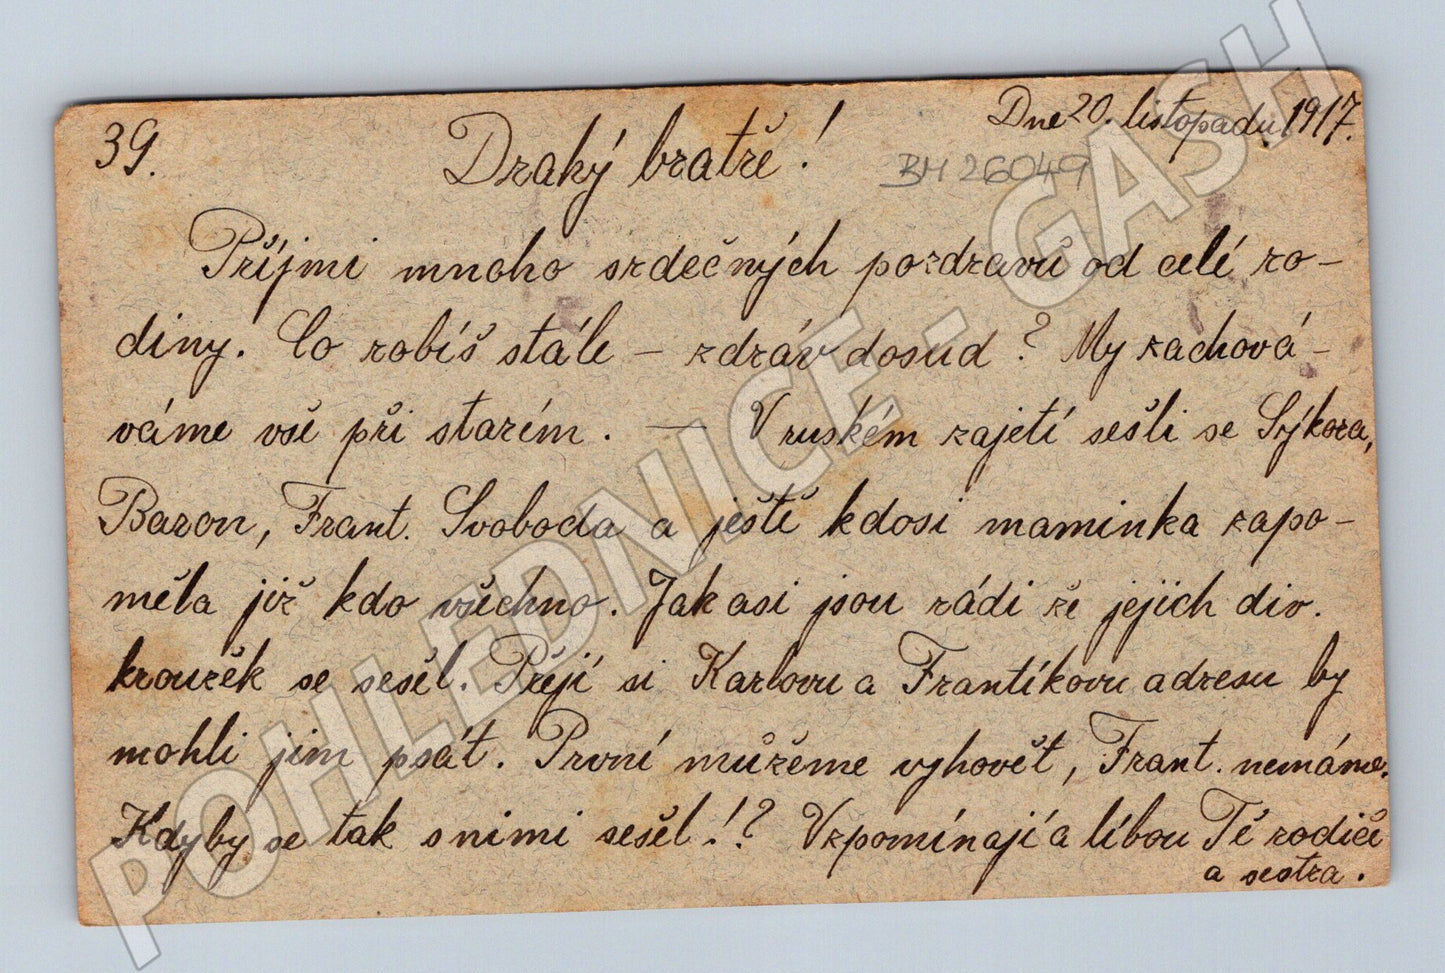 39.
Dne 20. listopadu 1917.
Drahý bratře!
BH 26049
Příjmi mnoho srdečných pozdravů od celé ro-
diny. Co robíš stále – zdráv dosud? My zachová-
váme vše při starém. — V ruském zajetí sešli se Sýkora,
Baron, Frant. Svoboda a ještě kdosi maminka zapo-
měla již kdo všechno. Jak asi jsou rádi že jejich div.
kroužek se sešel. Přejí si Karlovu a Frantíkovu adresu by
mohli jim psát. První můžeme vyhovět, Frant. nemáme.
Kdyby se tak s nimi sešel!? Vzpomínají a líbou Tě rodiče
a sestra.
POHLEDNICE - GASH